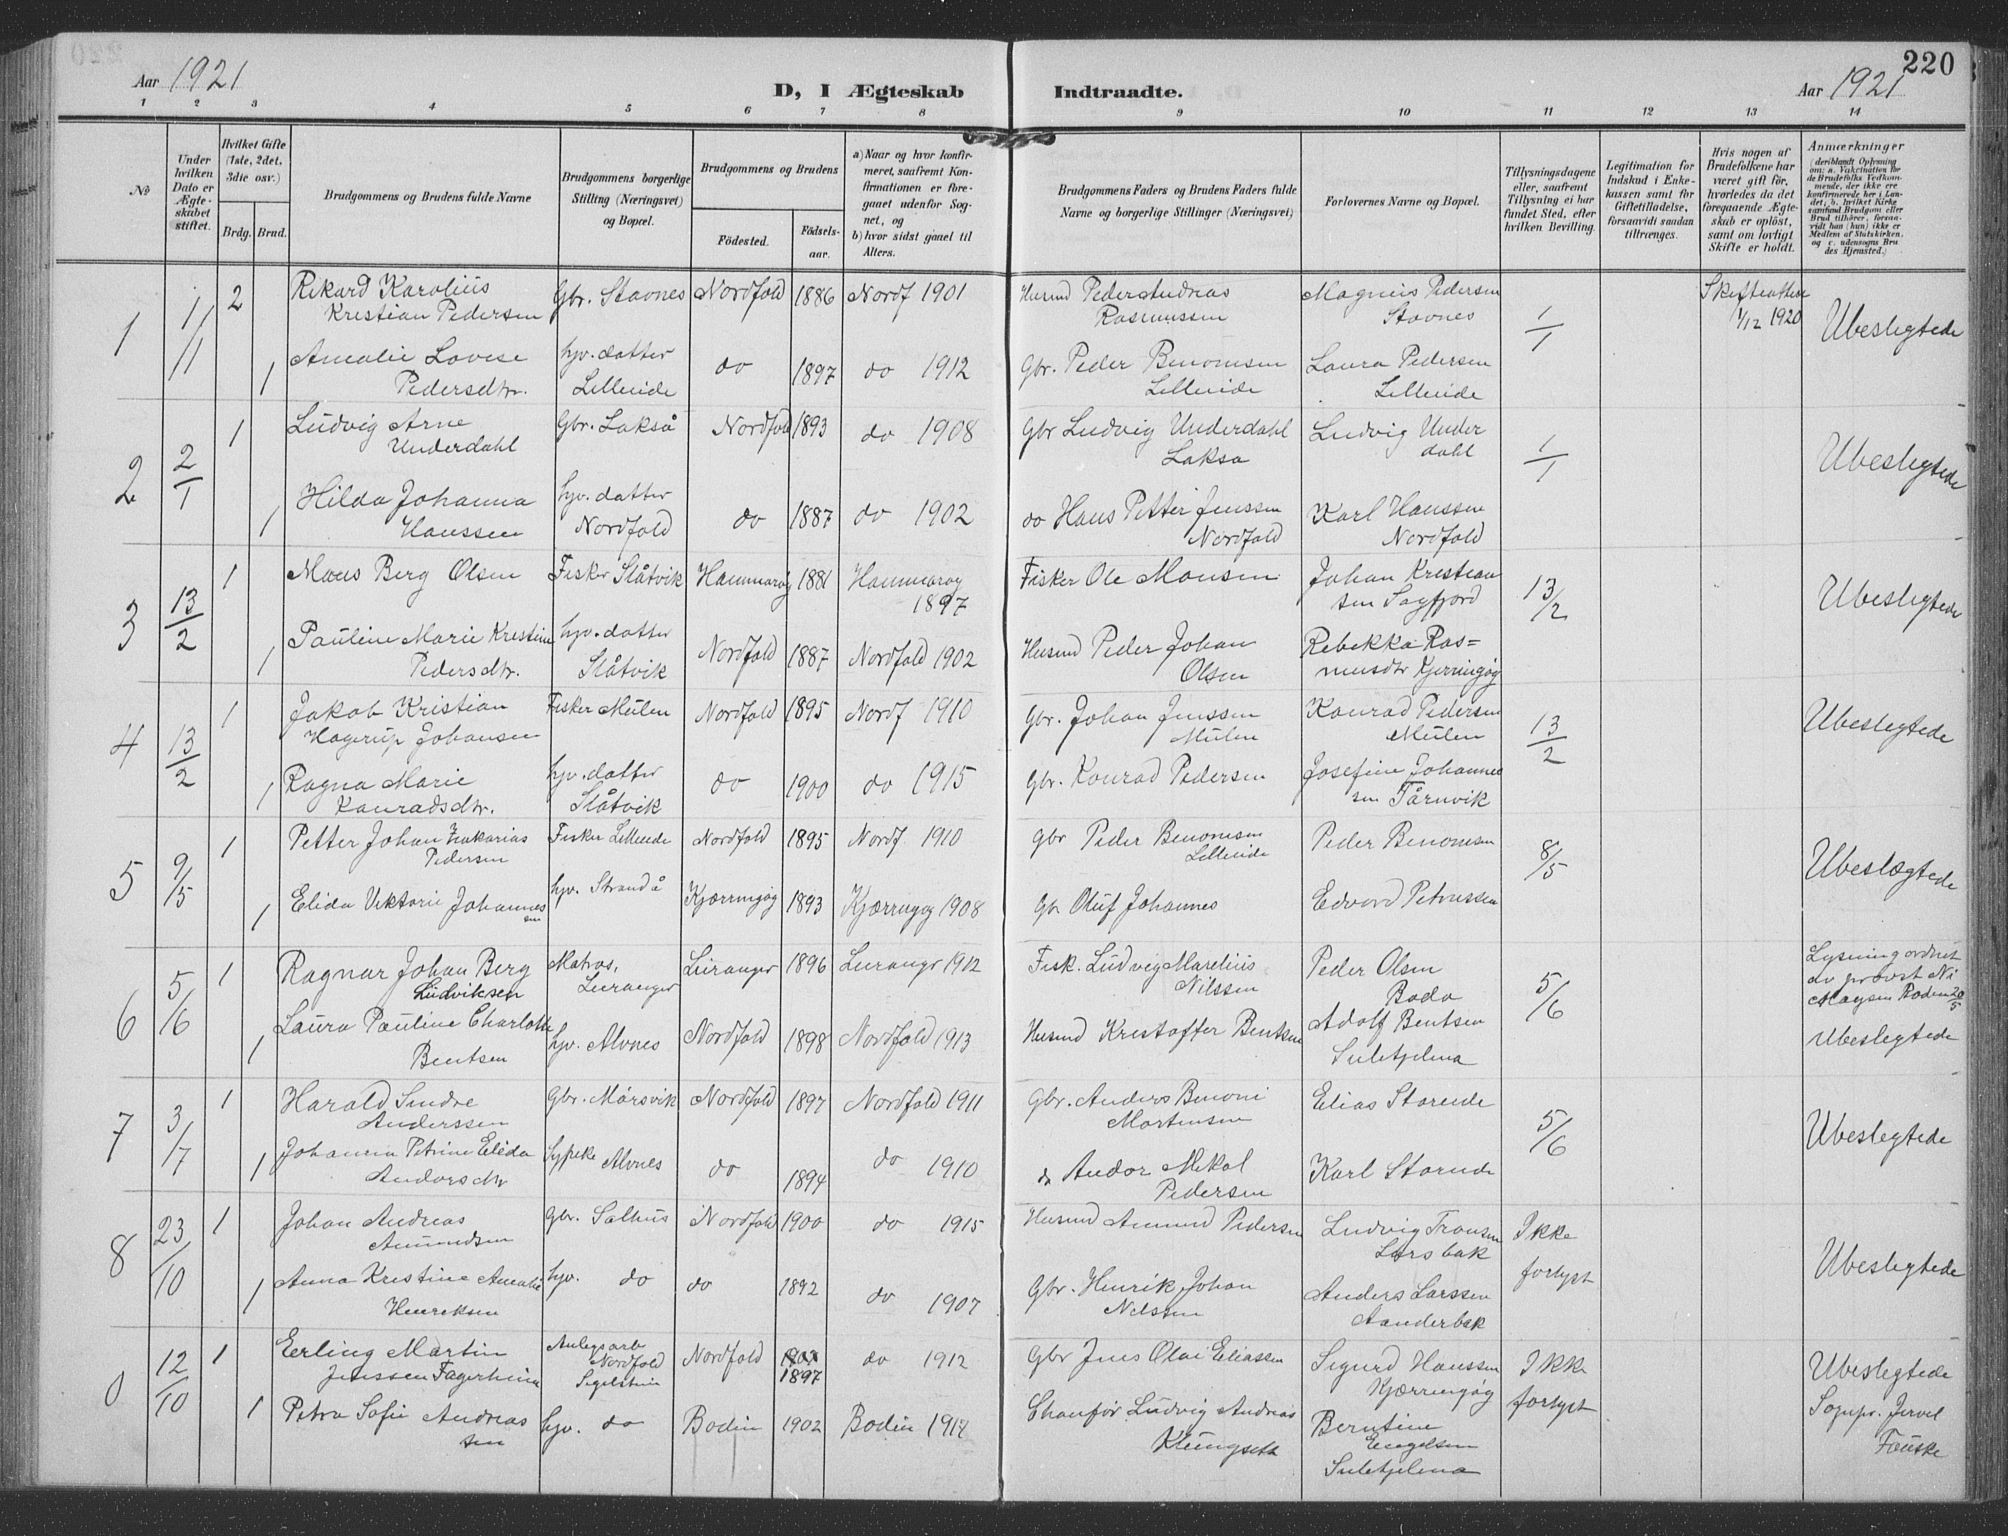 220
Aar 1921
D, I Ægteskab Indtraadte.
Aar 1921
1 2 3 4 5 6 7 8 9 10 11 12 13 14
No
Under hvilken Dato er Ægteskabet stiftet.
Hvilket Gifte (1ste, 2det, 3die osv.)
Brdg. Brud.
Brudgommens og Brudens fulde Navne
Brudgommens borgerlige Stilling (Næringsvei) og Bopæl.
Brudgommens og Brudens
Födested.
Födselsaar.
a) Naar og hvor konfirmeret, saafremt Konfirmationen er foregaaet udenfor Sognet, og
b) hvor sidst gaaet til Alters.
Brudgommens Faders og Brudens Faders fulde Navne og borgerlige Stillinger (Næringsvei)
Forlovernes Navne og Bopæl.
Tillysningsdagene eller, saafremt Tillysning ei har fundet Sted, efter hvilken Bevilling.
Legitimation for Indskud i Enkekassen samt for Giftetilladelse, forsaavidt saadan tiltrænges.
Hvis nogen af Brudefolkene har været gift för, hvorledes da det foregaaende Ægteskab er oplöst, samt om lovligt Skifte er holdt.
Anmærkninger
1 1/11 2 Rikard Karolius Kristian Pedersen Gbr. Stavnes Nordfold 1886 Nordf 1901 Husmd Peder Andreas Rasmussen Magnus Pedersen Stavnes 1/1 Skifteattest 1/12 1920 Ubeslegtede
1 Amalie Lovise Pedersdtr. hjv. datter Lilleeide do 1897 do 1912 Gbr. Peder Benomsen Lilleeide Laura Pedersen Lilleeide
2 2/1 1 Ludvig Arne Underdahl Gbr. Lakså Nordfold 1893 do 1908 Gbr Ludvig Underdahl Laksa Ludvig Underdahl 1/1 Ubeslegtede
1 Hilda Johanna Hanssen hjv. datter Nordfold do 1887 do 1902 do Hans Petter Jenssen Nordfold Karl Hanssen Nordfold
3 13/2 1 Mons Berg Olsen Fisker Slåtvik Hammarøy 1881 Hammarøy 1897 Fisker Ole Monsen Johan Kristiansen Sagfjord 13/2 Ubeslegtede
1 Pauline Marie Kristine Pedersdtr. hjv. datter Slåtvik Nordfold 1887 Nordfold 1902 Husmd Peder Johan Olsen Rebekka Rasmusdtr Kjerringøy
4 13/2 1 Jakob Kristian Hagerup Johansen Fisker Mulen Nordfold 1895 Nordf 1910 Gbr. Johan Jenssen Mulen Konrad Pedersen Mulen 13/2 Ubeslegtede
1 Ragna Marie Konradsdtr. hjv. datter Slåtvik do 1900 do 1915 Gbr. Konrad Pedersen Josefine Johannessen Tårnvik
5 9/5 1 Petter Johan Zakarias Pedersen Fisker Lilleeide Nordfold 1895 Nordf 1910 Gbr Peder Benomsen Lilleeide Peder Benomsen 8/5 Ubeslægtede
1 Elida Viktorie Johannessen hjv. Strandå Kjærringøy 1893 Kjærringøy 1908 Gbr Oluf Johannes Edvard Petrussen
6 5/6 1 Ragnar Johan Berg Ludviksen Matros, Leiranger Leiranger 1896 Leirangr 1912 Fisk. Ludvig Marelius Nilssen Peder Olsen Bodø 5/6 Lysning ordnet av provst Ubeslegtede
1 Laura Pauline Charlotte Bentsen hjv. Alvnes Nordfold 1898 Nordfold 1913 Husmd Kristoffer Bentsen Adolf Bentsen Sulitjelma
7 3/7 1 Harald Sindre Anderssen Gbr. Mørsvik Nordfold 1897 Nordfold 1911 Gbr. Anders Benoni Mortensen Elias Storeide 5/6 Ubeslegtede
1 Johanna Petrine Elida Andorsdtr Sypike Alvnes do 1894 do 1910 Andor Mikal Pedersen Karl Storeide
8 23/10 1 Johan Andreas Amundsen Gbr. Salhus Nordfold 1900 do 1915 Husmd Amund Pedersen Ludvig Fransen Larsbak Ikke forlyst Ubeslegtede
1 Anna Kristine Amalie Henriksen hjv. do do 1892 do 1907 Gbr. Henrik Johan Nilssen Anders Larssen Aanderbak
0 12/10 1 Eerling Martin Jenssen Fagerheim Anlegsarb Nordfold Segelstein Nordfold 1897 do 1912 Gbr Jens Olai Eliassen Sigurd Hanssen Kjærringøy Ikke forlyst Ubeslegtede Sognpr. Jervel Fauske
1 Petra Sofie Andreassen hjv. do Bodin 1902 Bodin 1917 Chaufør Ludvig Andreas Klungseth Berntine Engelsen Sulitjelma